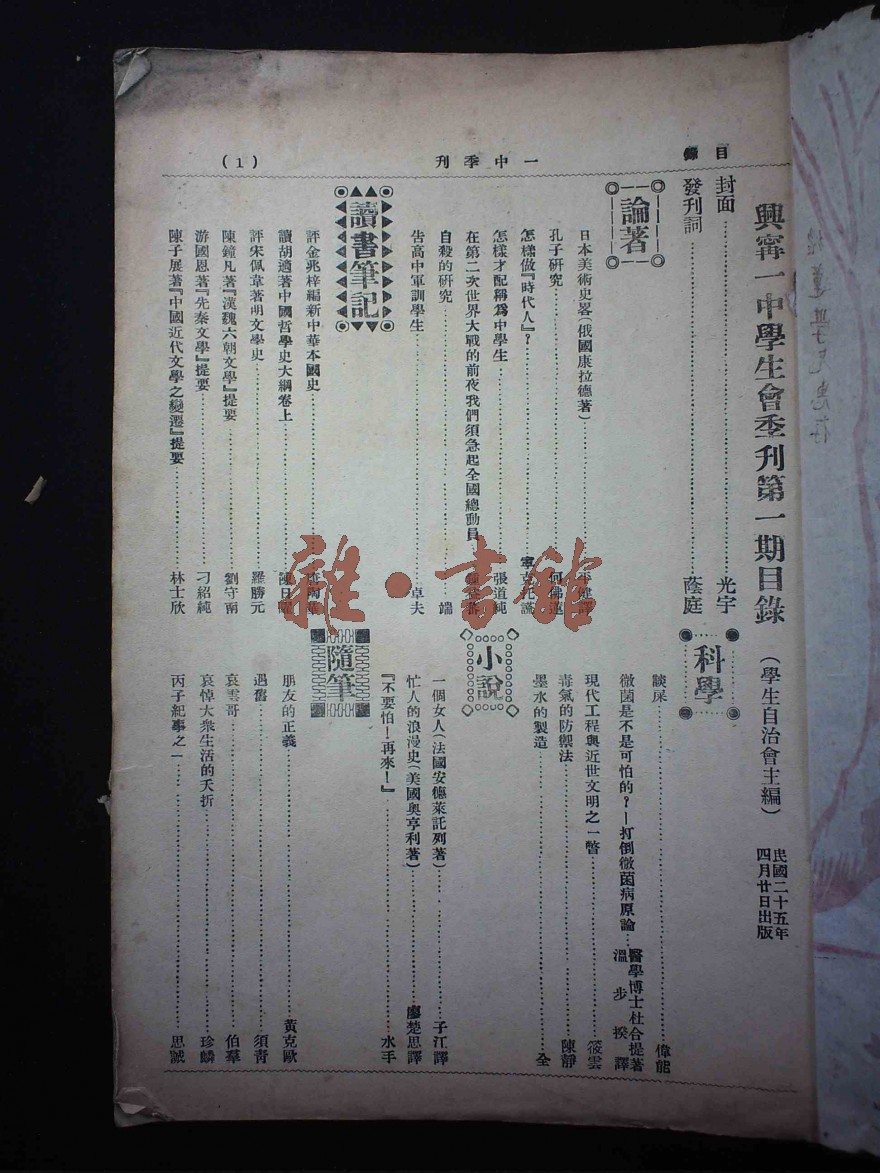 目錄
一中季刊
(1)
興甯一中學生會季刊第一期目錄
(學生自治會主編)
民國二十五年
四月廿日出版
封面 光宇
發刊詞 蔭庭
論著
日本美術史畧(俄國康拉德著) 健譯
孔子研究 何佛
怎樣做『時代人』?
怎樣才配稱爲中學生 張道純
在第二次世界大戰的前夜我們須急起全國總動員
自殺的研究 端
告高中軍訓學生 卓夫
讀書筆記
評金兆梓編新中華本國史
讀胡適著中國哲學史大綱卷上 陳日曜
評宋佩韋著明文學史 羅勝元
陳鐘凡著『漢魏六朝文學』提要 劉守南
游國恩著『先秦文學』提要 刁紹純
陳子展著『中國近代文學之變遷』提要 林士欣
科學
談屎 偉能
微菌是不是可怕的?—打倒微菌病原論 醫學博士杜合提著
溫步揆譯
現代工程與近世文明之一瞥 筱雲
毒氣的防禦法 陳靜
墨水的製造 全
小說
一個女人(法國安德萊託列著) 子江譯
忙人的浪漫史(美國奧亨利著) 廖楚思譯
『不要怕!再來!』 水手
隨筆
朋友的正義 黃克歐
遇舊 須靑
哀雲哥 伯羣
哀悼大衆生活的夭折 珍嶙
丙子紀事之一 思誠
雜·書館